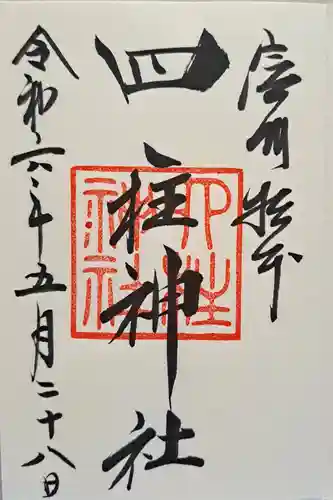 信州 松本
四柱神社
四柱神社
令和六年五月二十八日